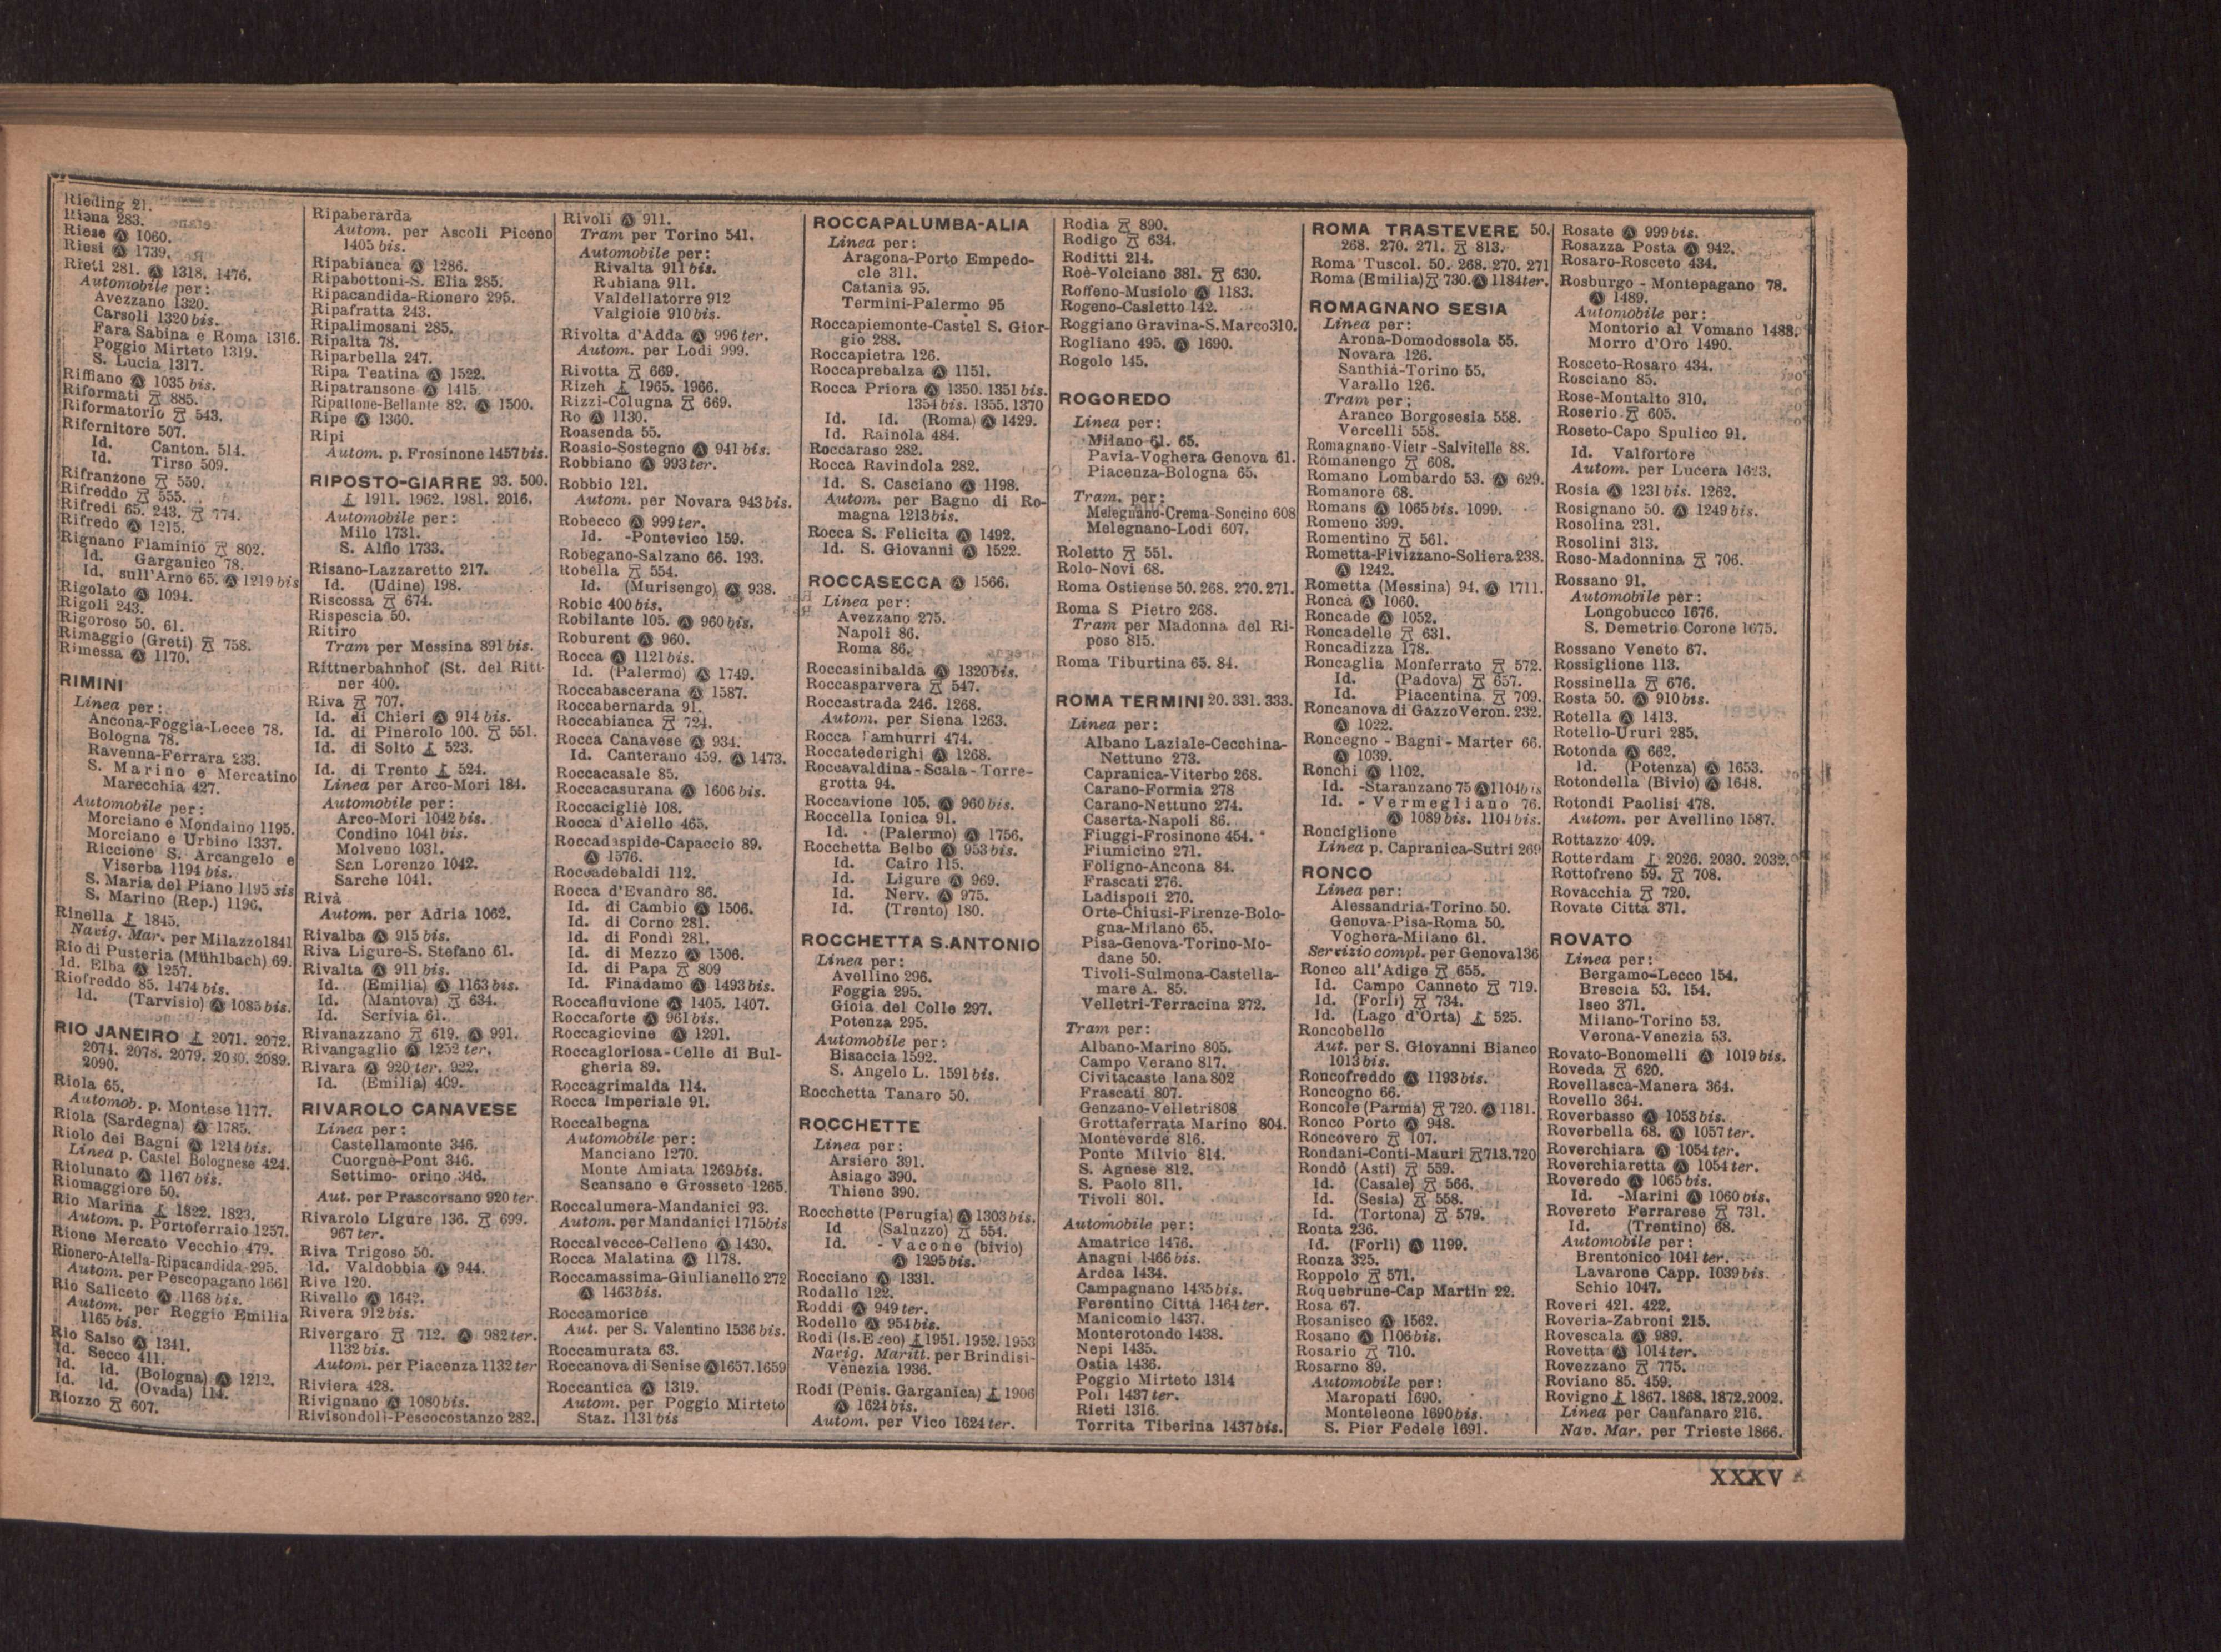 Rieding 21.
Riana 283.
Riese Ⓐ 1060.
Riesi Ⓐ 1739.
Rieti 281. Ⓐ 1318. 1476.
Automobile per:
Avezzano 1320.
Carsoli 1320 bis.
Fara Sabina e Roma 1316.
Poggio Mirteto 1319.
S. Lucia 1317.
Riffiano Ⓐ 1035 bis.
Riformati 885.
Riformatorio 543.
Rifornitore 507.
Id. Canton. 514.
Id. Tirso 509.
Rifranzone 559.
Rifreddo 555.
Rifredi 65. 243. 774.
Rifredo Ⓐ 1215.
Rignano Flaminio 802.
Id. Garganico 78.
Id. sull'Arno 65. Ⓐ 1219 bis
Rigolato Ⓐ 1094.
Rigoli 243.
Rigoroso 50. 61.
Rimaggio (Greti) 758.
Rimessa Ⓐ 1170.
RIMINI
Linea per:
Ancona-Foggia-Lecce 78.
Bologna 78.
Ravenna-Ferrara 233.
S. Marino e Mercatino
Marecchia 427.
Automobile per:
Morciano e Mondaino 1195.
Morciano e Urbino 1337.
Riccione S. Arcangelo e
Viserba 1194 bis.
S. Maria del Piano 1195 sis
S. Marino (Rep.) 1196.
Rinella 1845.
Navig. Mar. per Milazzo1841
Rio di Pusteria (Mühlbach) 69.
Id. Elba Ⓐ 1257.
Riofreddo 85. 1474 bis.
Id. (Tarvisio) Ⓐ 1085 bis.
RIO JANEIRO 2071. 2072.
2074. 2078. 2079. 2080. 2089.
2090.
Riola 65.
Automob. p. Montese 1177.
Riola (Sardegna) Ⓐ 1785.
Riolo dei Bagni Ⓐ 1214 bis.
Linea p. Castel Bolognese 424.
Riolunato Ⓐ 1167 bis.
Riomaggiore 50.
Rio Marina 1822. 1823.
Autom. p. Portoferraio 1257.
Rione Mercato Vecchio 479.
Rionero-Atella-Ripacandida 295.
Autom. per Pescopagano 1661
Rio Saliceto Ⓐ 1168 bis.
Autom. per Reggio Emilia
1165 bis.
Rio Salso Ⓐ 1341.
Id. Secco 411.
Id. Id. (Bologna) Ⓐ 1212.
Id. Id. (Ovada) 114.
Riozzo 607.
Ripaberarda
Autom. per Ascoli Piceno
1405 bis.
Ripabianca Ⓐ 1286.
Ripabottoni-S. Elia 285.
Ripacandida-Rionero 295.
Ripafratta 243.
Ripalimosani 285.
Ripalta 78.
Riparbella 247.
Ripa Teatina Ⓐ 1522.
Ripatransone Ⓐ 1415.
Ripattone-Bellante 82. Ⓐ 1500.
Ripe Ⓐ 1360.
Ripi
Autom. p. Frosinone 1457 bis.
RIPOSTO-GIARRE 93. 500.
1911. 1962. 1981. 2016.
Automobile per:
Milo 1731.
S. Alfio 1733.
Risano-Lazzaretto 217.
Id. (Udine) 198.
Riscossa 674.
Rispescia 50.
Ritiro
Tram per Messina 891 bis.
Rittnerbahnhof (St. del Ritt-
ner 400.
Riva 707.
Id. di Chieri Ⓐ 914 bis.
Id. di Pinerolo 100. 551.
Id. di Solto 523.
Id. di Trento 524.
Linea per Arco-Mori 184.
Automobile per:
Arco-Mori 1042 bis.
Condino 1041 bis.
Molveno 1031.
San Lorenzo 1042.
Sarche 1041.
Rivà
Autom. per Adria 1062.
Rivalba Ⓐ 915 bis.
Riva Ligure-S. Stefano 61.
Rivalta Ⓐ 911 bis.
Id. (Emilia) Ⓐ 1163 bis.
Id. (Mantova) 634.
Id. Scrivia 61.
Rivanazzano 619. Ⓐ 991.
Rivangaglio Ⓐ 1252 ter.
Rivara Ⓐ 920 ter. 922.
Id. (Emilia) 409.
RIVAROLO CANAVESE
Linea per:
Castellamonte 346.
Cuorgnè-Pont 346.
Settimo- orino 346.
Aut. per Prascorsano 920 ter.
Rivarolo Ligure 136. 699.
967 ter.
Riva Trigoso 50.
Id. Valdobbia Ⓐ 944.
Rive 120.
Rivello Ⓐ 1642.
Rivera 912 bis.
Rivergaro 712. Ⓐ 982 ter.
1132 bis.
Autom. per Piacenza 1132 ter
Riviera 428.
Rivignano Ⓐ 1080 bis.
Rivisondoli-Pescocostanzo 282.
Rivoli Ⓐ 911.
Tram per Torino 541.
Automobile per:
Rivalta 911 bis.
Rubiana 911.
Valdellatorre 912
Valgioie 910 bis.
Rivolta d'Adda Ⓐ 996 ter.
Autom. per Lodi 999.
Rivotta 669.
Rizeh 1965. 1966.
Rizzi-Colugna 669.
Ro Ⓐ 1130.
Roasenda 55.
Roasio-Sostegno Ⓐ 941 bis.
Robbiano Ⓐ 993 ter.
Robbio 121.
Autom. per Novara 943 bis.
Robecco Ⓐ 999 ter.
Id. -Pontevico 159.
Robegano-Salzano 66. 193.
Robella 554.
Id. (Murisengo) Ⓐ 938.
Robic 400 bis.
Robilante 105. Ⓐ 960 bis.
Roburent Ⓐ 960.
Rocca Ⓐ 1121 bis.
Id. (Palermo) Ⓐ 1749.
Roccabascerana Ⓐ 1587.
Roccabernarda 91.
Roccabianca 724.
Rocca Canavese Ⓐ 934.
Id. Canterano 459. Ⓐ 1473.
Roccacasale 85.
Roccacasurana Ⓐ 1606 bis.
Roccacigliè 108.
Rocca d'Aiello 465.
Roccadaspide-Capaccio 89.
Ⓐ 1576.
Roccadebaldi 112.
Rocca d'Evandro 86.
Id. di Cambio Ⓐ 1506.
Id. di Corno 281.
Id. di Fondi 281.
Id. di Mezzo Ⓐ 1506.
Id. di Papa 809
Id. Finadamo Ⓐ 1493 bis.
Roccafluvione Ⓐ 1405. 1407.
Roccaforte Ⓐ 961 bis.
Roccagiovine Ⓐ 1291.
Roccagloriosa-Celle di Bul-
gheria 89.
Roccagrimalda 114.
Rocca Imperiale 91.
Roccalbegna
Automobile per:
Manciano 1270.
Monte Amiata 1269 bis.
Scansano e Grosseto 1265.
Roccalumera-Mandanici 93.
Autom. per Mandanici 1715 bis
Roccalvecce-Celleno Ⓐ 1430.
Rocca Malatina Ⓐ 1178.
Roccamassima-Giulianello 272
Ⓐ 1463 bis.
Roccamorice
Aut. per S. Valentino 1536 bis.
Roccamurata 63.
Roccanova di Senise Ⓐ 1657.1659
Roccantica Ⓐ 1319.
Autom. per Poggio Mirteto
Staz. 1131 bis
ROCCAPALUMBA-ALIA
Linea per:
Aragona-Porto Empedo-
cle 311.
Catania 95.
Termini-Palermo 95
Roccapiemonte-Castel S. Gior-
gio 288.
Roccapietra 126.
Roccaprebalza Ⓐ 1151.
Rocca Priora Ⓐ 1350. 1351 bis.
1354 bis. 1355. 1370
Id. Id. (Roma) Ⓐ 1429.
Id. Rainola 484.
Roccaraso 282.
Rocca Ravindola 282.
Id. S. Casciano Ⓐ 1198.
Autom. per Bagno di Ro-
magna 1213 bis.
Rocca S. Felicita Ⓐ 1492.
Id. S. Giovanni Ⓐ 1522.
ROCCASECCA Ⓐ 1566.
Linea per:
Avezzano 275.
Napoli 86.
Roma 86.
Roccasinibalda Ⓐ 1320 bis.
Roccasparvera 547.
Roccastrada 246. 1268.
Autom. per Siena 1263.
Rocca Tamburri 474.
Roccatederighi Ⓐ 1268.
Roccavaldina-Scala-Torre-
grotta 94.
Roccavione 105. Ⓐ 960 bis.
Roccella Ionica 91.
Id. (Palermo) Ⓐ 1756.
Rocchetta Belbo Ⓐ 953 bis.
Id. Cairo 115.
Id. Ligure Ⓐ 969.
Id. Nerv. Ⓐ 975.
Id. (Trento) 180.
ROCCHETTA S.ANTONIO
Linea per:
Avellino 296.
Foggia 295.
Gioia del Colle 297.
Potenza 295.
Automobile per:
Bisaccia 1592.
S. Angelo L. 1591 bis.
Rocchetta Tanaro 50.
ROCCHETTE
Linea per:
Arsiero 391.
Asiago 390.
Thiene 390.
Rocchette (Perugia) Ⓐ 1303 bis.
Id (Saluzzo) 554.
Id. - Vacone (bivio)
Ⓐ 1295 bis.
Rocciano Ⓐ 1331.
Rodallo 122.
Roddi Ⓐ 949 ter.
Rodello Ⓐ 954 bis.
Rodi (Is. Egeo) 1951. 1952. 1953
Navig. Maritt. per Brindisi-
Venezia 1936.
Rodi (Penis. Garganica) 1906
Ⓐ 1624 bis.
Autom. per Vico 1624 ter.
Rodia 890.
Rodigo 634.
Roditti 214.
Roè-Volciano 381. 630.
Roffeno-Musiolo Ⓐ 1183.
Rogeno-Casletto 142.
Roggiano Gravina-S.Marco310.
Rogliano 495. Ⓐ 1690.
Rogolo 145.
ROGOREDO
Linea per:
Milano 61. 65.
Pavia-Voghera Genova 61.
Piacenza-Bologna 65.
Tram. per:
Melegnano-Crema-Soncino 608
Melegnano-Lodi 607.
Roletto 551.
Rolo-Novi 68.
Roma Ostiense 50. 268. 270. 271.
Roma S Pietro 268.
Tram per Madonna del Ri-
poso 815.
Roma Tiburtina 65. 84.
ROMA TERMINI 20. 331. 333.
Linea per:
Albano Laziale-Cecchina-
Nettuno 273.
Capranica-Viterbo 268.
Carano-Formia 278
Carano-Nettuno 274.
Caserta-Napoli 86.
Fiuggi-Frosinone 454.
Fiumicino 271.
Foligno-Ancona 84.
Frascati 276.
Ladispoli 270.
Orte-Chiusi-Firenze-Bolo-
gna-Milano 65.
Pisa-Genova-Torino-Mo-
dane 50.
Tivoli-Sulmona-Castella-
mare A. 85.
Velletri-Terracina 272.
Tram per:
Albano-Marino 805.
Campo Verano 817.
Civitacaste lana 802
Frascati 807.
Genzano-Velletri808
Grottaferrata Marino 804.
Monteverde 816.
Ponte Milvio 814.
S. Agnese 812.
S. Paolo 811.
Tivoli 801.
Automobile per:
Amatrice 1476.
Anagni 1466 bis.
Ardea 1434.
Campagnano 1435 bis.
Ferentino Città 1464 ter.
Manicomio 1437.
Monterotondo 1438.
Nepi 1435.
Ostia 1436.
Poggio Mirteto 1314
Poli 1437 ter.
Rieti 1316.
Torrita Tiberina 1437 bis.
ROMA TRASTEVERE 50.
268. 270. 271. 813.
Roma Tuscol. 50. 268. 270. 271
Roma (Emilia) 730. Ⓐ 1184 ter.
ROMAGNANO SESIA
Linea per:
Arona-Domodossola 55.
Novara 126.
Santhià-Torino 55.
Varallo 126.
Tram per:
Aranco Borgosesia 558.
Vercelli 558.
Romagnano-Vietr -Salvitelle 88.
Romanengo 608.
Romano Lombardo 53. Ⓐ 629.
Romanore 68.
Romans Ⓐ 1065 bis. 1099.
Romeno 399.
Romentino 561.
Rometta-Fivizzano-Soliera 238.
Ⓐ 1242.
Rometta (Messina) 94. Ⓐ 1711.
Roncà Ⓐ 1060.
Roncade Ⓐ 1052.
Roncadelle 631.
Roncadizza 178.
Roncaglia Monferrato 572.
Id. (Padova) 657.
Id. Piacentina 709.
Roncanova di Gazzo Veron. 232.
Ⓐ 1022.
Roncegno - Bagni - Marter 66.
Ⓐ 1039.
Ronchi Ⓐ 1102.
Id. -Staranzano 75 Ⓐ 1104 bis
Id. - Vermegliano 76.
Ⓐ 1089 bis. 1104 bis.
Ronciglione
Linea p. Capranica-Sutri 269
RONCO
Linea per:
Alessandria-Torino 50.
Genova-Pisa-Roma 50.
Voghera-Milano 61.
Servizio compl. per Genova136
Ronco all'Adige 655.
Id. Campo Canneto 719.
Id. (Forlì) 734.
Id. (Lago d'Orta) 525.
Roncobello
Aut. per S. Giovanni Bianco
1013 bis.
Roncofreddo Ⓐ 1193 bis.
Roncogno 66.
Roncole (Parma) 720. Ⓐ 1181.
Ronco Porto Ⓐ 948.
Roncovero 107.
Rondani-Conti-Mauri 713.720
Rondò (Asti) 559.
Id. (Casale) 566.
Id. (Sesia) 558.
Id. (Tortona) 579.
Ronta 236.
Id. (Forlì) Ⓐ 1199.
Ronza 325.
Roppolo 571.
Roquebrune-Cap Martin 22.
Rosa 67.
Rosanisco Ⓐ 1562.
Rosano Ⓐ 1106 bis.
Rosario 710.
Rosarno 89.
Automobile per:
Maropati 1690.
Monteleone 1690 bis.
S. Pier Fedele 1691.
Rosate Ⓐ 999 bis.
Rosazza Posta Ⓐ 942.
Rosaro-Rosceto 434.
Rosburgo - Montepagano 78.
Ⓐ 1489.
Automobile per:
Montorio al Vomano 1488.
Morro d'Oro 1490.
Rosceto-Rosaro 434.
Rosciano 85.
Rose-Montalto 310.
Roserio 605.
Roseto-Capo Spulico 91.
Id. Valfortore
Autom. per Lucera 1623.
Rosia Ⓐ 1231 bis. 1262.
Rosignano 50. Ⓐ 1249 bis.
Rosolina 231.
Rosolini 313.
Roso-Madonnina 706.
Rossano 91.
Automobile per:
Longobucco 1676.
S. Demetrio Corone 1675.
Rossano Veneto 67.
Rossiglione 113.
Rossinella 676.
Rosta 50. Ⓐ 910 bis.
Rotella Ⓐ 1413.
Rotello-Ururi 285.
Rotonda Ⓐ 662.
Id. (Potenza) Ⓐ 1653.
Rotondella (Bivio) Ⓐ 1648.
Rotondi Paolisi 478.
Autom. per Avellino 1587.
Rottazzo 409.
Rotterdam 2026. 2030. 2032.
Rottofreno 59. 708.
Rovacchia 720.
Rovate Città 371.
ROVATO
Linea per:
Bergamo-Lecco 154.
Brescia 53. 154.
Iseo 371.
Milano-Torino 53.
Verona-Venezia 53.
Rovato-Bonomelli Ⓐ 1019 bis.
Roveda 620.
Rovellasca-Manera 364.
Rovello 364.
Roverbasso Ⓐ 1053 bis.
Roverbella 68. Ⓐ 1057 ter.
Roverchiara Ⓐ 1054 ter.
Roverchiaretta Ⓐ 1054 ter.
Roveredo Ⓐ 1065 bis.
Id. -Marini Ⓐ 1060 bis.
Rovereto Ferrarese 731.
Id. (Trentino) 68.
Automobile per:
Brentonico 1041 ter.
Lavarone Capp. 1039 bis.
Schio 1047.
Roveri 421. 422.
Roveria-Zabroni 215.
Rovescala Ⓐ 989.
Rovetta Ⓐ 1014 ter.
Rovezzano 775.
Roviano 85. 459.
Rovigno 1867. 1868. 1872. 2002.
Linea per Canfanaro 216.
Nav. Mar. per Trieste 1866.
XXXV